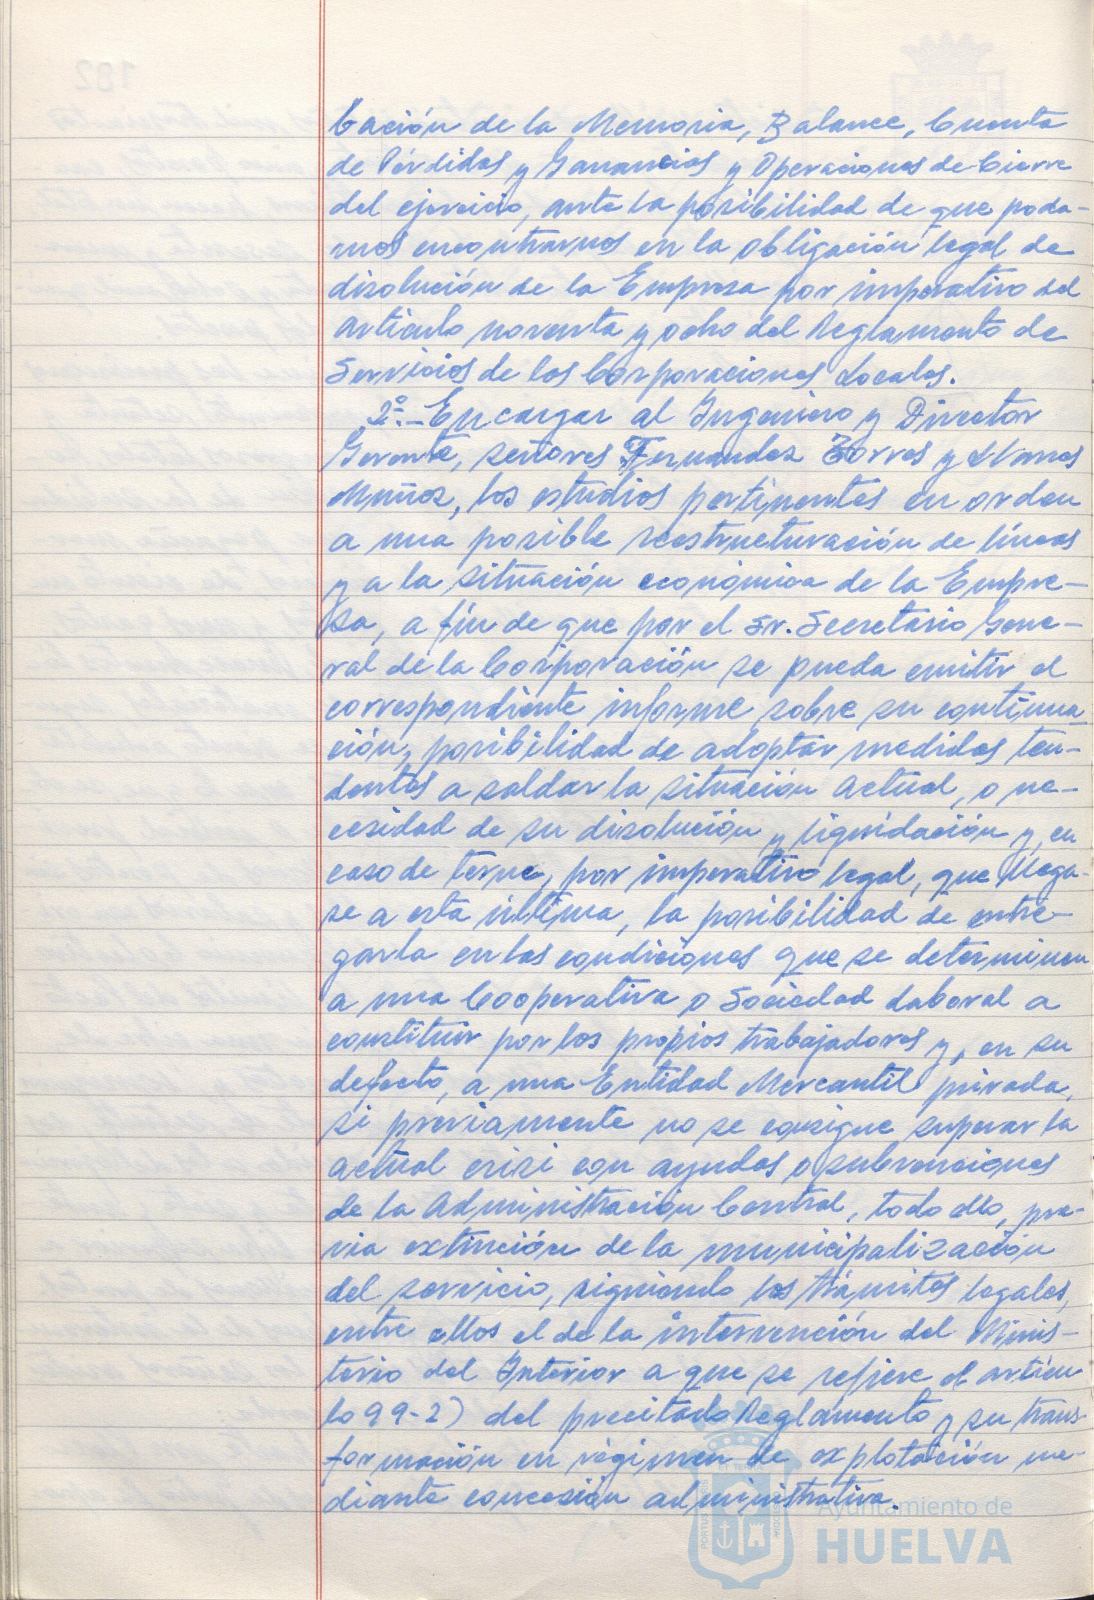 cación de la Memoria, Balance, Cuenta
de Pérdidas y Ganancias y Operaciones de Cierre
del ejercicio, ante la posibilidad de que poda-
mos encontrarnos en la obligación legal de
disolución de la Empresa por imperativo del
artículo noventa y ocho del Reglamento de
Servicios de las Corporaciones Locales.
2º.- Encargar al Ingeniero y Director
Gerente, señores Fernandez Torres y Llanes
Muñoz, los estudios pertinentes en orden
a una posible reestructuración de líneas
y a la situación económica de la Empre-
sa, a fin de que por el Sr. Secretario Gene-
ral de la Corporación se pueda emitir el
correspondiente informe sobre su continua-
ción, posibilidad de adoptar medidas ten-
dentes a saldar la situación actual, o ne-
cesidad de su disolución y liquidación y, en
caso de que, por imperativo legal, que llega-
se a esta última, la posibilidad de entre-
garla en las condiciones que se determinen
a una Cooperativa o Sociedad Laboral a
constituir por los propios trabajadores y, en su
defecto, a una Entidad Mercantil privada,
si previamente no se consigue superar la
actual crisi con ayudas o subvenciones
de la Administración Central, todo ello, pre-
via extinción de la municipalización
del servicio, siguiendo los trámites legales,
entre ellos el de la intervención del Minis-
terio del Interior a que se refiere el artícu-
lo 99-2) del precitado Reglamento y su trans-
formación en régimen de explotación me-
diante concesión administrativa.
Ayuntamiento de
HUELVA